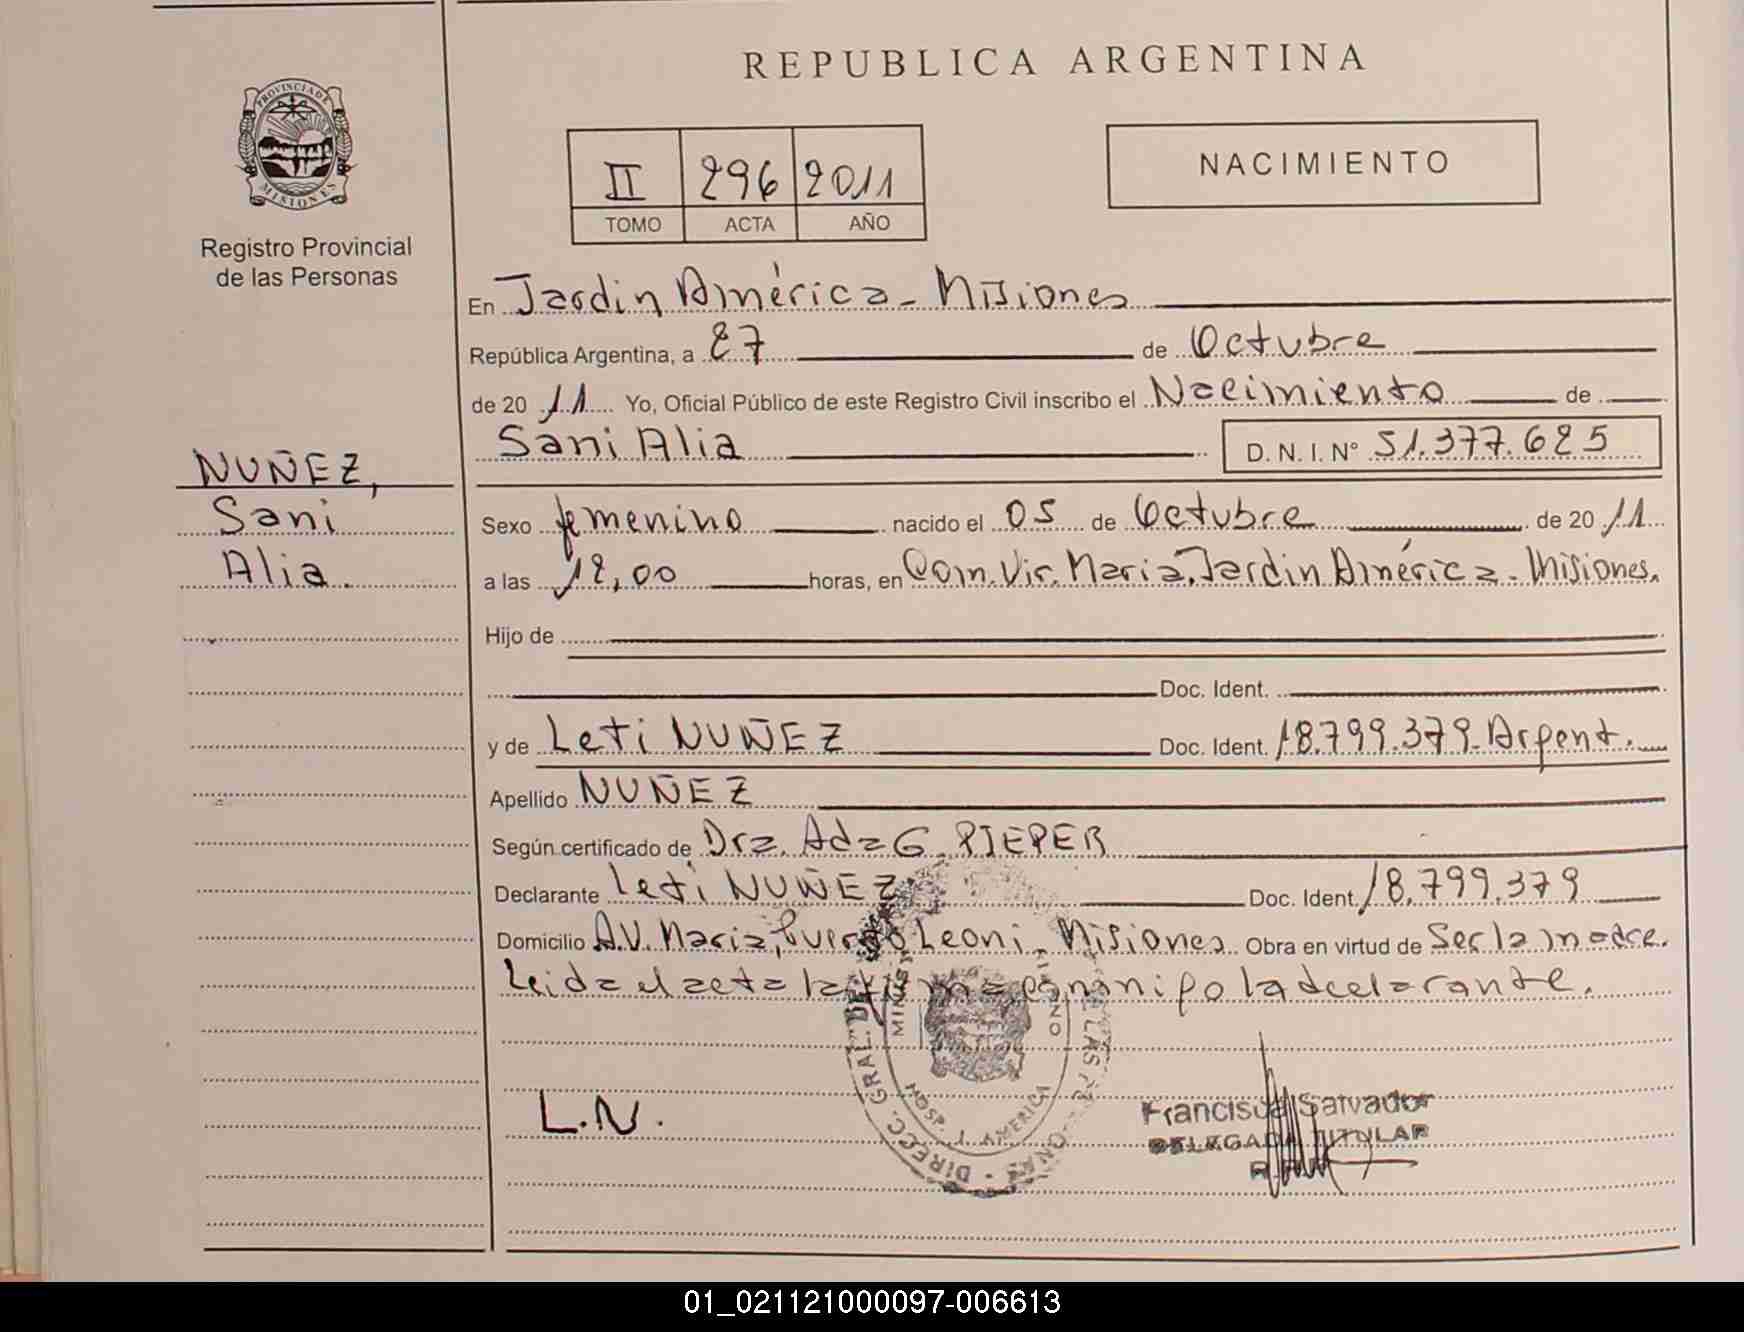 REPUBLICA ARGENTINA
PROVINCIA DE
MISIONES
Registro Provincial
de las Personas
II 296 2011
TOMO ACTA AÑO
NACIMIENTO
En Jardin América - Misiones
República Argentina, a 27 de Octubre
de 20 11 Yo, Oficial Público de este Registro Civil inscribo el Nacimiento de
Sani Alia D. N. I. Nº 51.377.625
NUÑEZ,
Sani
Alia.
Sexo femenino nacido el 05 de Octubre de 20 11
a las 12,00 horas, en Com. Vir. Maria. Jardin América - Misiones.
Hijo de
Doc. Ident.
y de Leti NUÑEZ Doc. Ident. 18.799.379 - Argent.
Apellido NUÑEZ
Según certificado de Dra. Ada G. PIEPER
Declarante Leti NUÑEZ Doc. Ident. 18.799.379
Domicilio A.V. Maria, Puerto Leoni - Misiones Obra en virtud de Ser la madre.
Leida el acta la declarante.
L.N.
DIRECC. GRAL. DE LAS
HOSP. J. AMERICA
Salvador
TITULAR
01_021121000097-006613